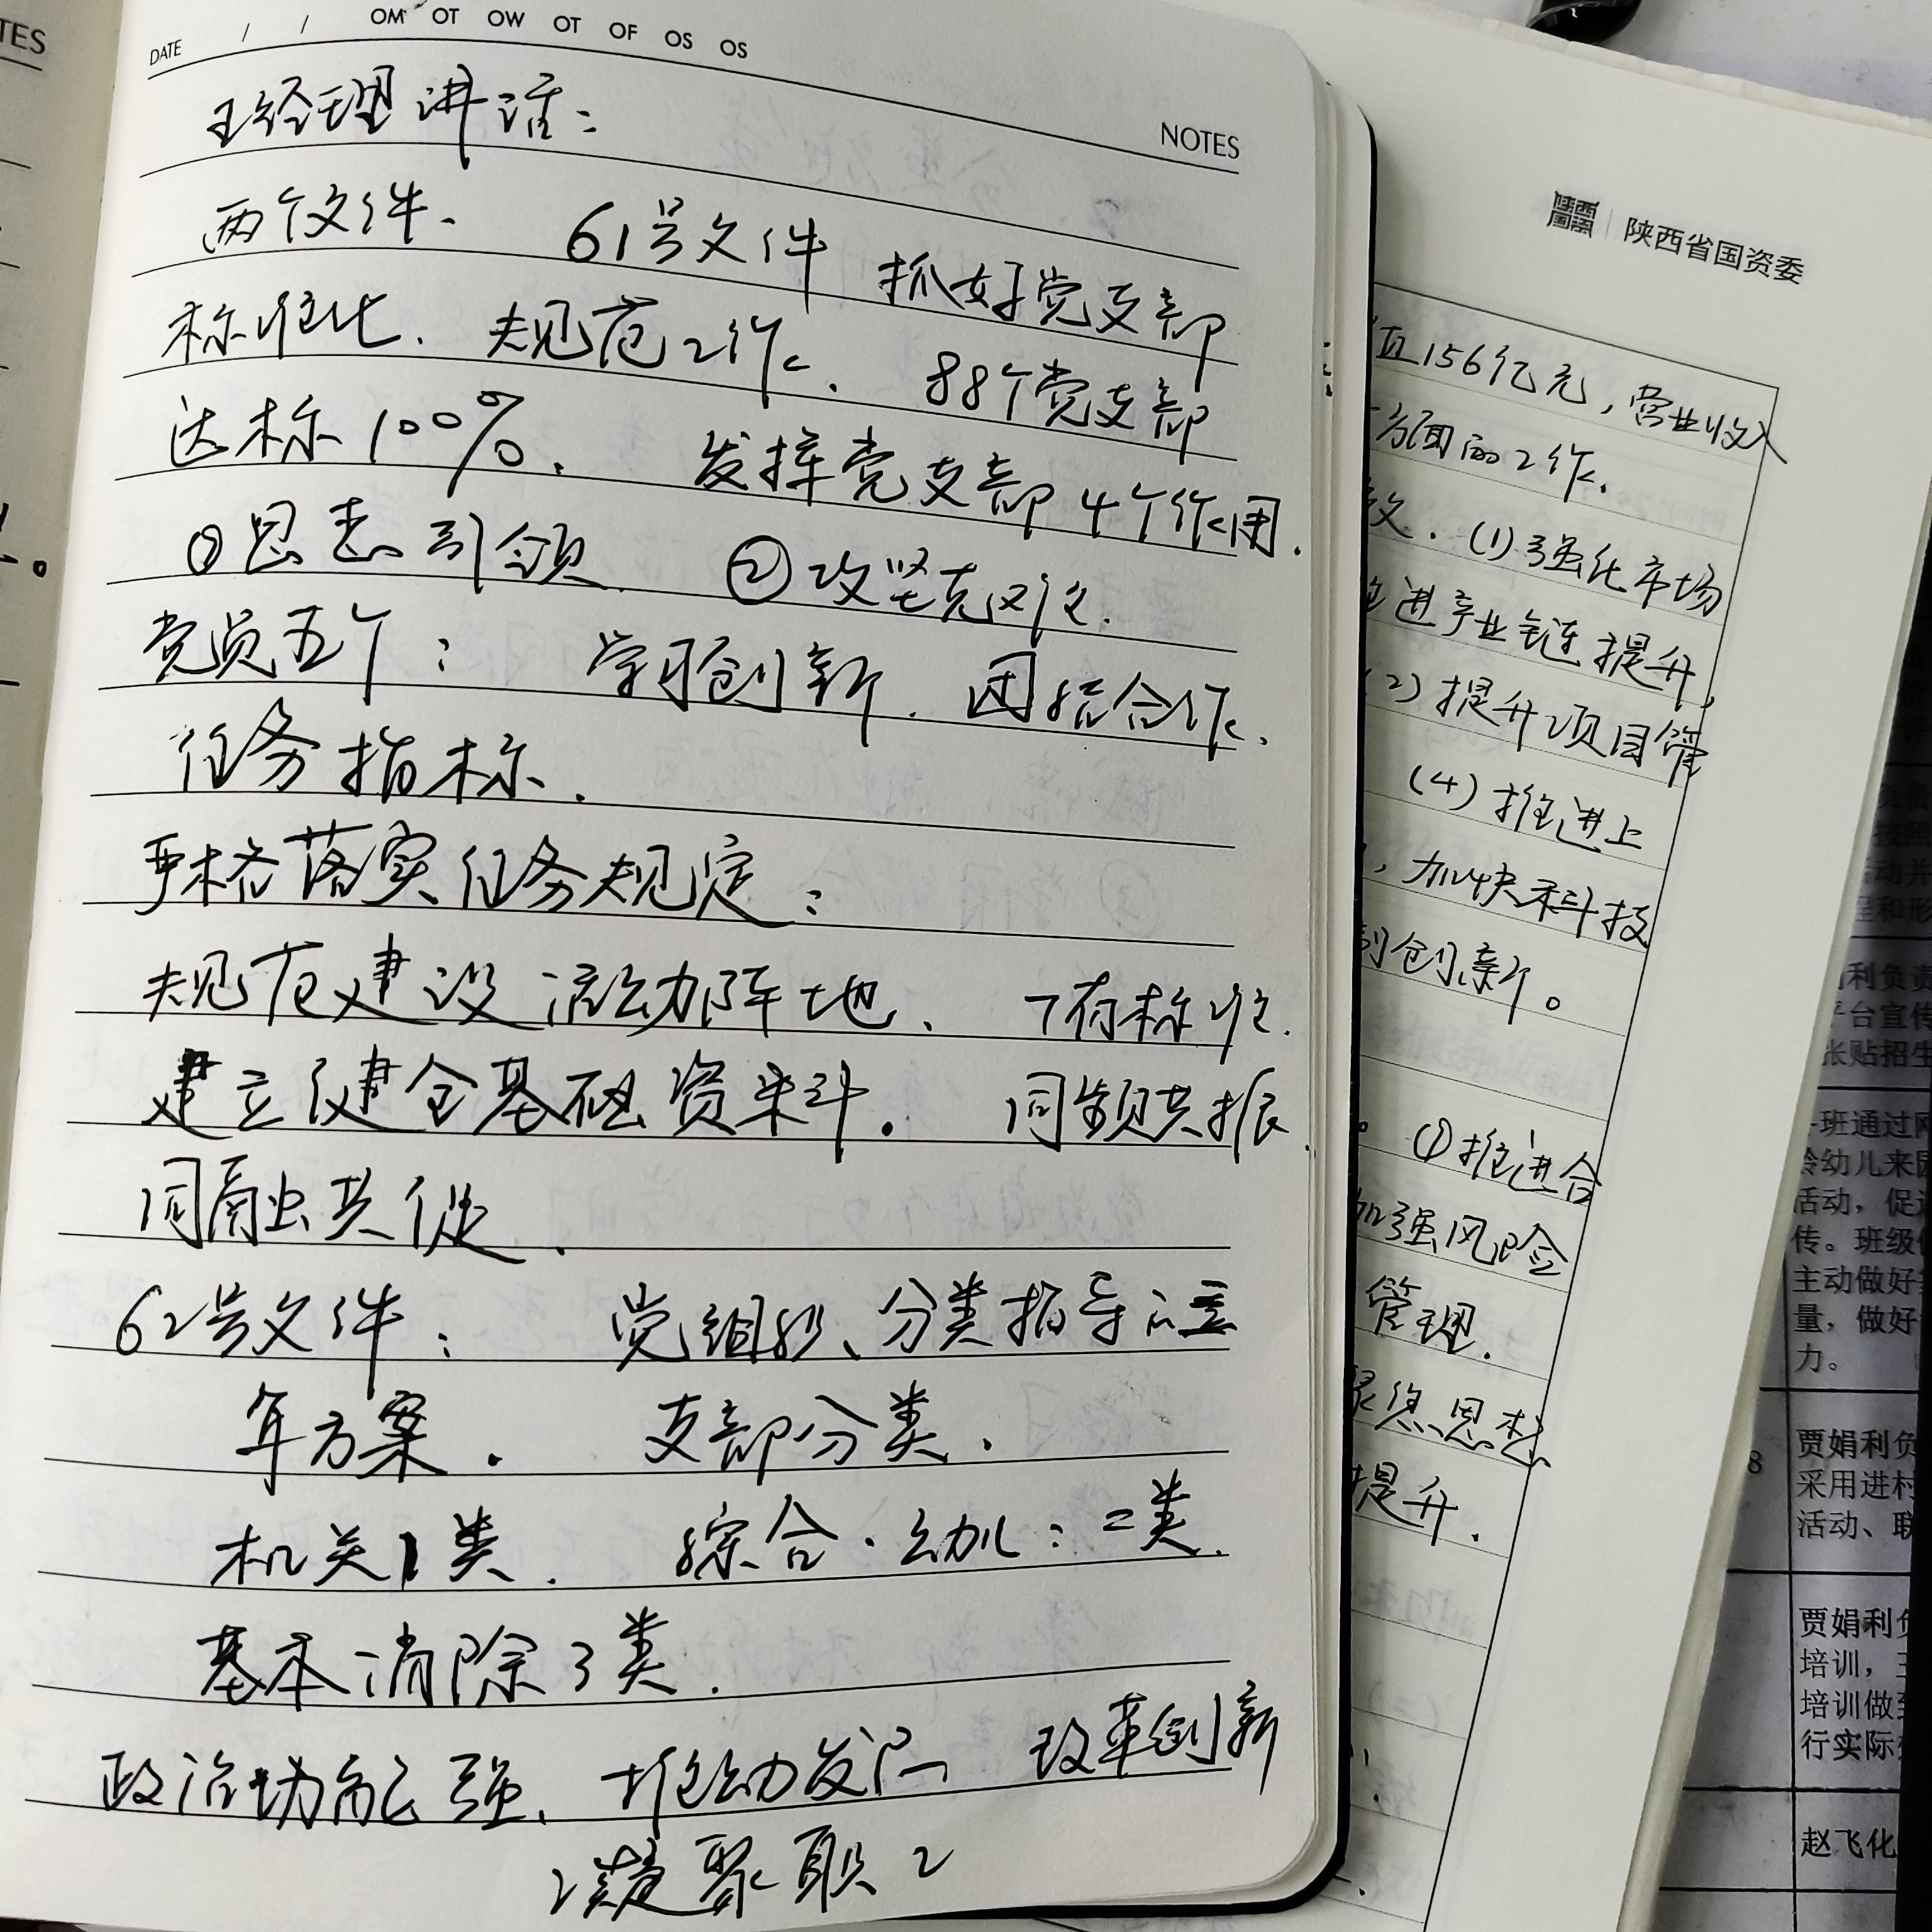 TES
DATE / / OM OT OW OT OF OS OS
NOTES
王经理讲话:
两个文件、 61号文件 抓好党支部
标准化、规范工作、 88个党支部
达标100%. 发挥党支部4个作用.
①思想引领 ②攻坚克难.
党员五个: 学习创新. 团结合作、
任务指标.
严格落实任务规定:
规范建设活动阵地、 7有标准.
建立健全基础资料。 同频共振.
同融共促.
62号文件: 党组织、分类指导
年方案. 支部分类.
机关1类. 综合·幼儿:二类.
基本消除3类.
政治功能强、推动发展 改革创新
凝聚职工
陕西省国资委
值156亿元,营业收入
方面的工作.
效.(1)强化市场
进产业链提升,
(2)提升项目管
(4)推进上
,加快科技
制创新。
。①推进合
加强风险
管理.
思想
提升.
利负责
平台宣传
张贴招生
班通过网
龄幼儿来园
活动,促进
传。班级
主动做好
量,做好
力。
8
贾娟利负
采用进村
活动、联
贾娟利负
培训,
培训做到
行实际
赵飞化